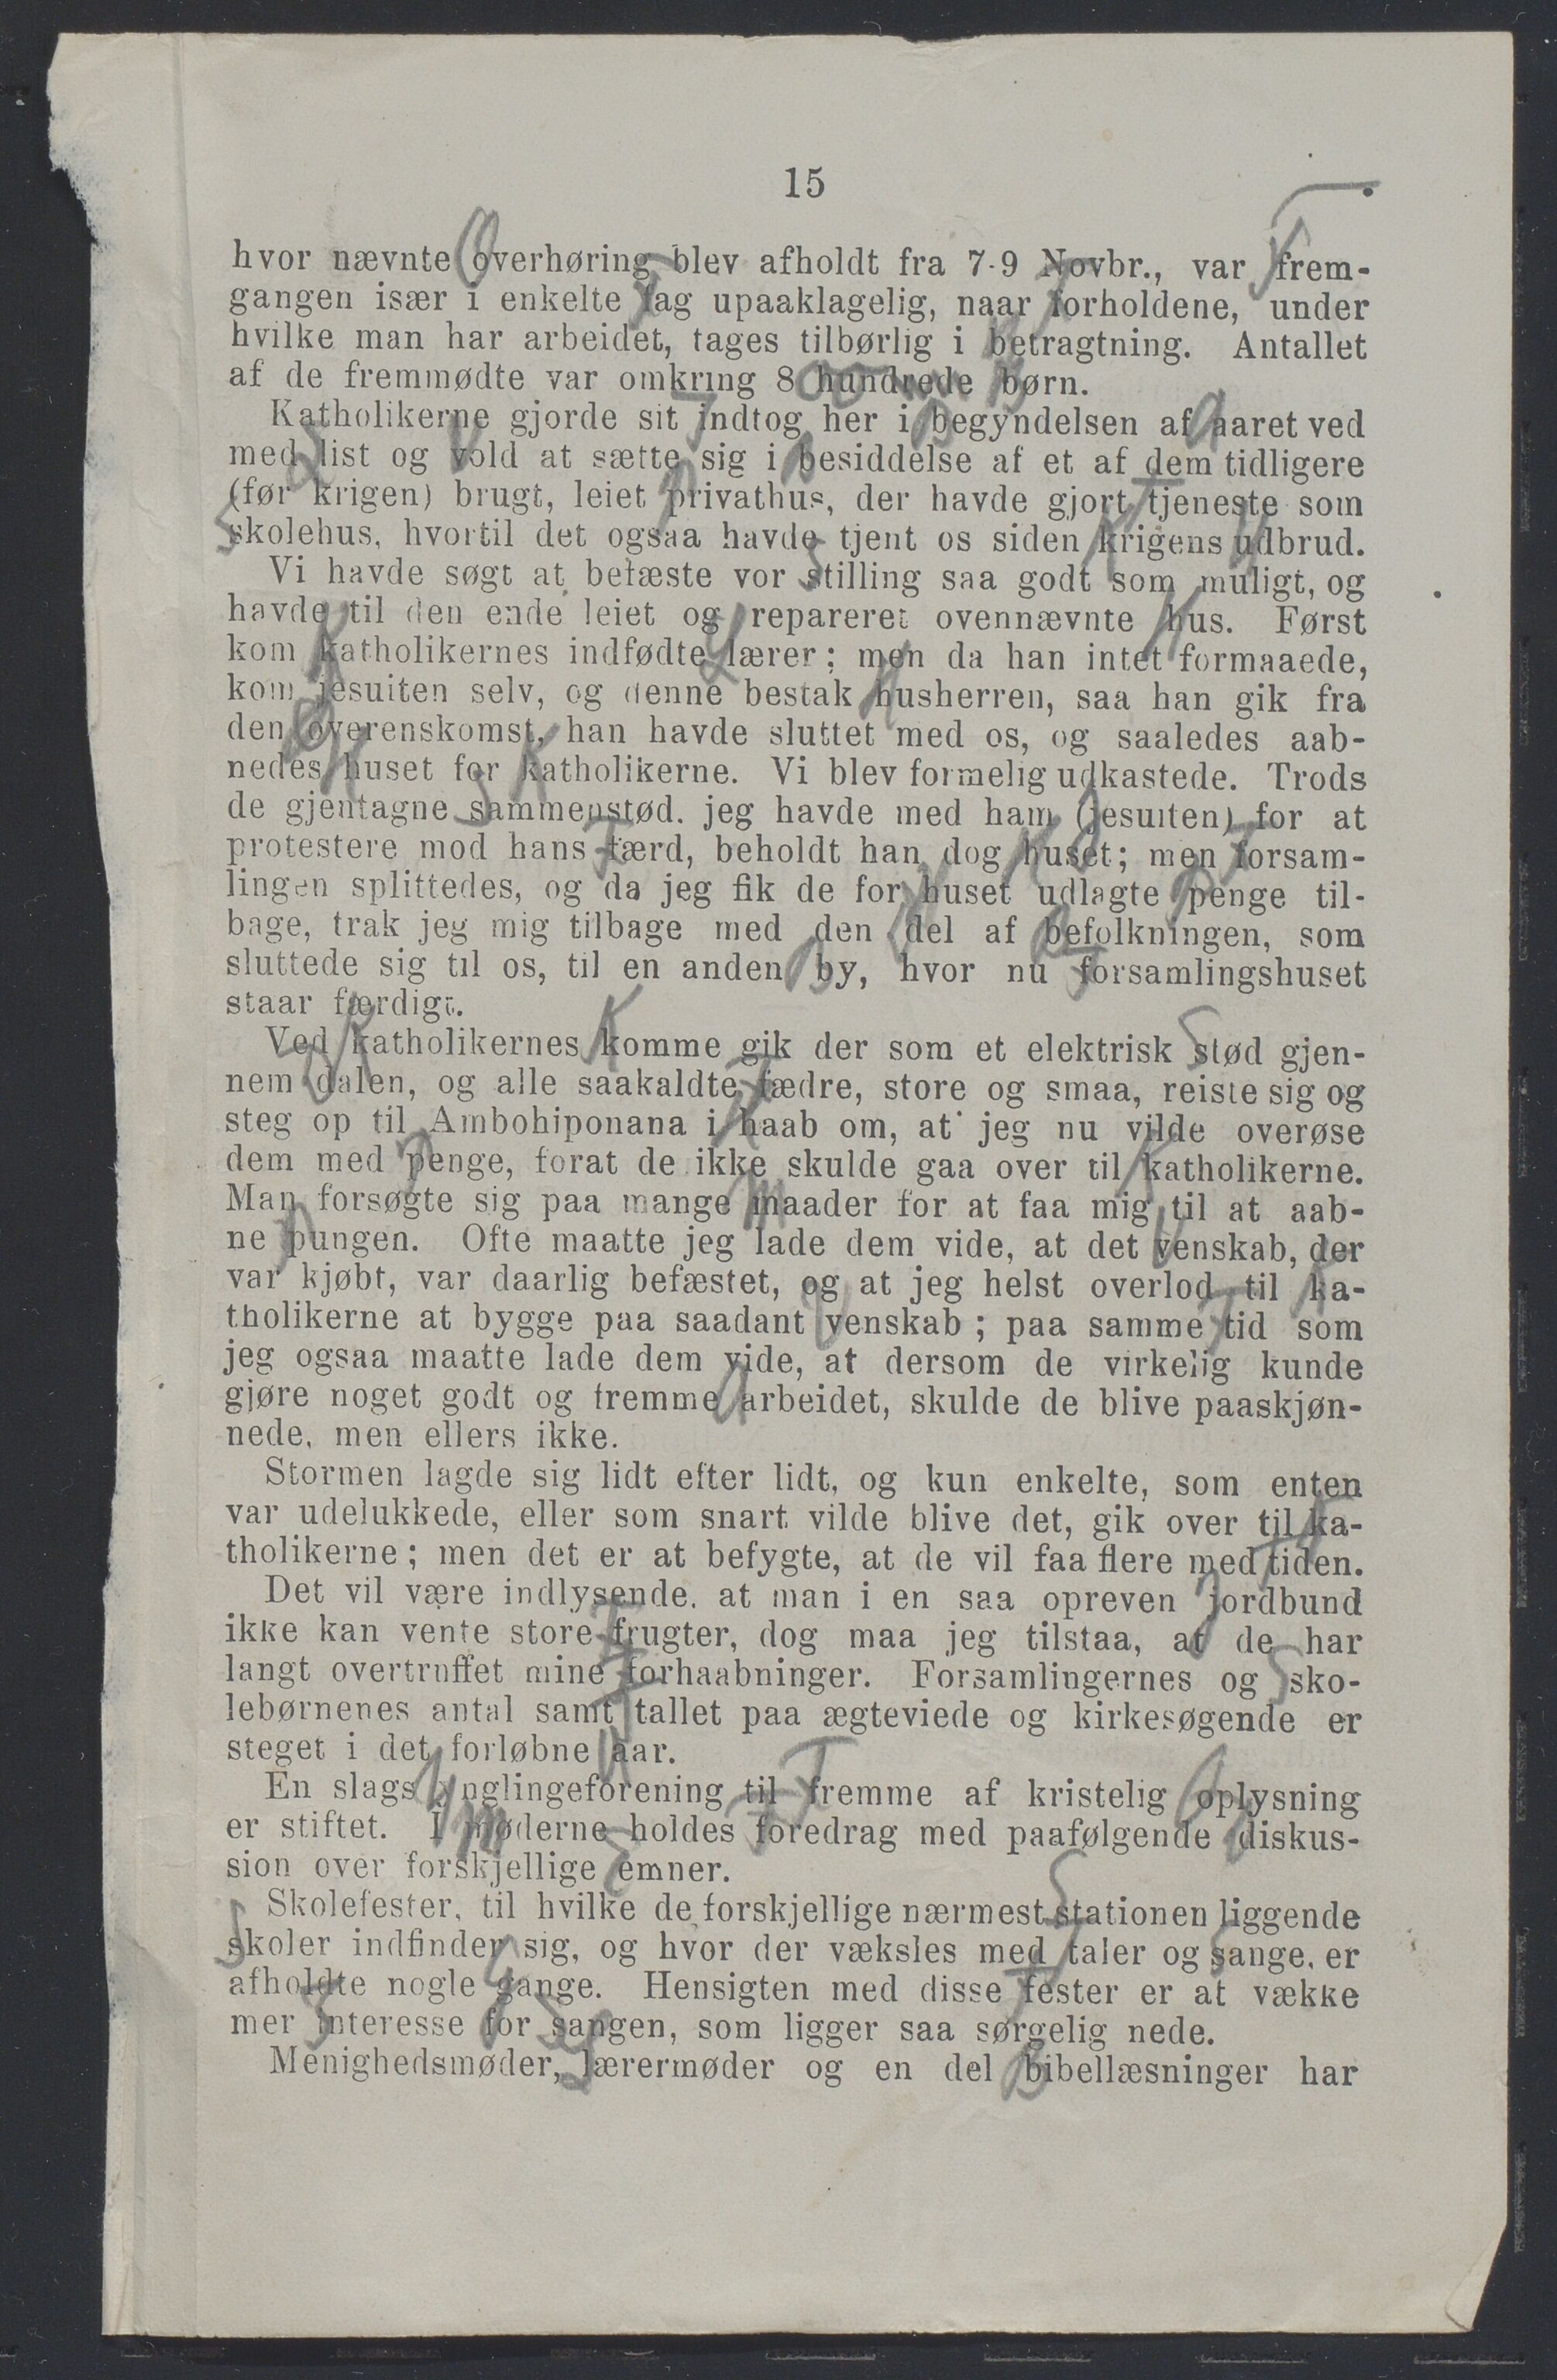 15
hvor nævnte overhøring blev afholdt fra 7-9 Novbr., var frem-
gangen især i enkelte fag upaaklagelig, naar forholdene, under
hvilke man har arbeidet, tages tilbørlig i betragtning. Antallet
af de fremmødte var omkring 8 hundrede børn.
Katholikerne gjorde sit indtog her i begyndelsen af aaret ved
med list og vold at sætte sig i besiddelse af et af dem tidligere
(før krigen) brugt, leiet privathus, der havde gjort tjeneste som
skolehus, hvortil det ogsaa havde tjent os siden krigens udbrud.
Vi havde søgt at befæste vor stilling saa godt som muligt, og
havde til den ende leiet og repareret ovennævnte hus. Først
kom katholikernes indfødte lærer; men da han intet formaaede,
kom jesuiten selv, og denne bestak husherren, saa han gik fra
den overenskomst, han havde sluttet med os, og saaledes aab-
nedes huset for katholikerne. Vi blev formelig udkastede. Trods
de gjentagne sammenstød. jeg havde med ham (jesuiten) for at
protestere mod hans færd, beholdt han dog huset; men forsam-
lingen splittedes, og da jeg fik de for huset udlagte penge til-
bage, trak jeg mig tilbage med den del af befolkningen, som
sluttede sig til os, til en anden by, hvor nu forsamlingshuset
staar færdigt.
Ved katholikernes komme gik der som et elektrisk stød gjen-
nem dalen, og alle saakaldte fædre, store og smaa, reiste sig og
steg op til Ambohiponana i haab om, at jeg nu vilde overøse
dem med penge, forat de ikke skulde gaa over til katholikerne.
Man forsøgte sig paa mange maader for at faa mig til at aab-
ne pungen. Ofte maatte jeg lade dem vide, at det venskab, der
var kjøbt, var daarlig befæstet, og at jeg helst overlod til ka-
tholikerne at bygge paa saadant venskab; paa samme tid som
jeg ogsaa maatte lade dem vide, at dersom de virkelig kunde
gjøre noget godt og fremme arbeidet, skulde de blive paaskjøn-
nede, men ellers ikke.
Stormen lagde sig lidt efter lidt, og kun enkelte, som enten
var udelukkede, eller som snart vilde blive det, gik over til ka-
tholikerne; men det er at befygte, at de vil faa flere med tiden.
Det vil være indlysende. at man i en saa opreven jordbund
ikke kan vente store frugter, dog maa jeg tilstaa, at de har
langt overtruffet mine forhaabninger. Forsamlingernes og sko-
lebørnenes antal samt tallet paa ægteviede og kirkesøgende er
steget i det forløbne aar.
En slags ynglingeforening til fremme af kristelig oplysning
er stiftet. I møderne holdes foredrag med paafølgende diskus-
sion over forskjellige emner.
Skolefester, til hvilke de forskjellige nærmest stationen liggende
skoler indfinder sig, og hvor der væksles med taler og sange, er
afholdte nogle gange. Hensigten med disse fester er at vække
mer interesse for sangen, som ligger saa sørgelig nede.
Menighedsmøder, lærermøder og en del bibellæsninger har